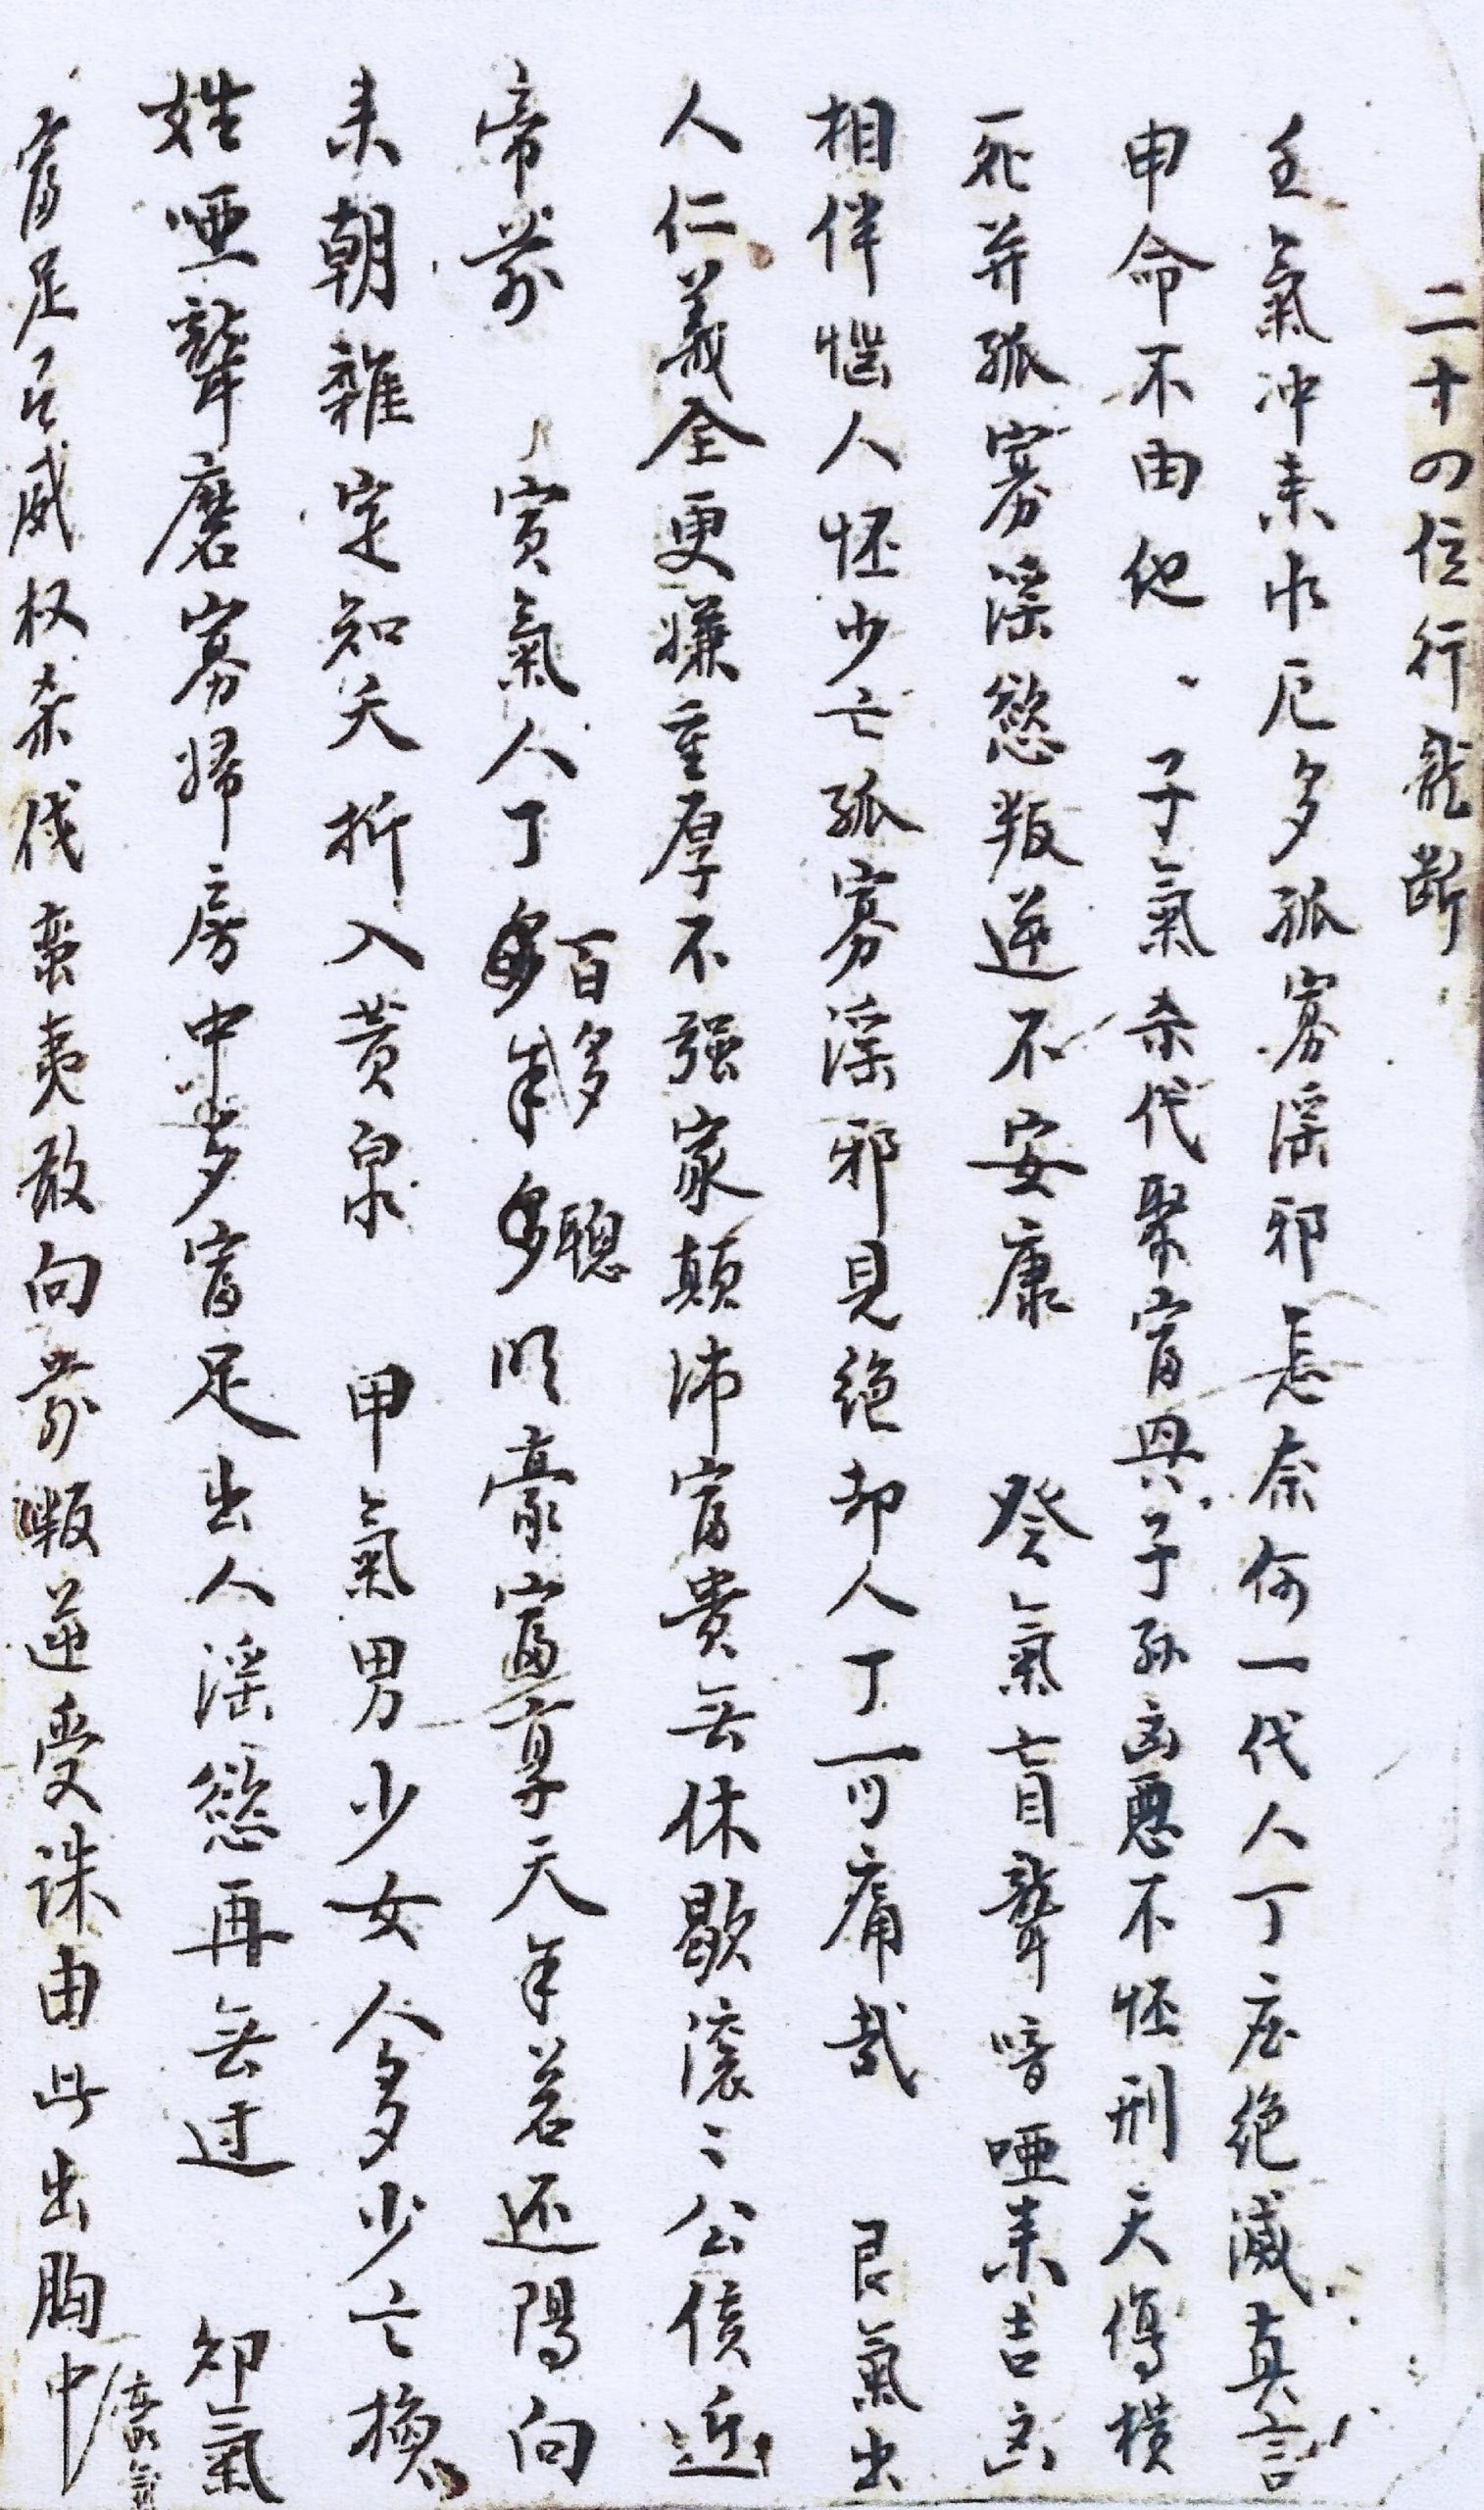 二十四位行龍斷
壬氣冲来水厄多孤寡滛邪忌奈何一代人丁庄绝滅真言
申命不由他、子氣杀代聚富與子孫凶惡不怪刑夭傷横
死并孤寡滛慾叛逆不安康 癸氣盲聾喑啞来吉凶
相伴惱人怀少亡孤寡滛邪見絶却人丁一可痛哉 艮氣出
人仁義全更嫌重厚不强家顛沛富貴无休歇滾〻公侯近
帝前 寅氣人丁百多年聰明豪富享天年若还陽向
来朝雜定知夭折入黄泉 甲氣男少女人多少亡換
姓啞聾磨寡婦房中多富足出人滛慾再无过 夘氣
富足名威权杀伐蛮夷敢向前叛逆受诛由此出胸中